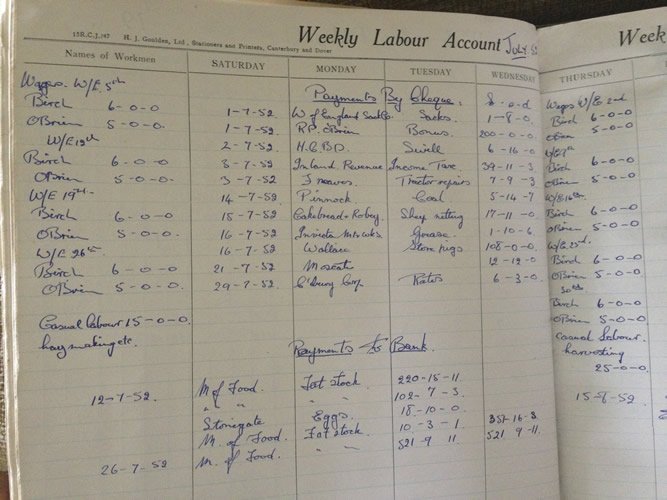 15R.C.J./47 H. J. Goulden, Ltd., Stationers and Printers, Canterbury and Dover
Weekly Labour Account July 52
Names of Workmen SATURDAY MONDAY TUESDAY WEDNESDAY
Wages. W/E 5th
Payments By Cheque. £-s-d
Birch 6-0-0 1-7-52. W of England Sack Co. Sacks. 1-8-0.
OBrien 5-0-0. 1-7-52. R.P. OBrien Bonus. 200-0-0.
W/E 12th 2-7-52. H.C.B.D. Swill 6-16-0
Birch 6-0-0 3-7-52. Inland Revenue Income Tax 39-11-3
OBrien 5-0-0. 3-7-52. Tractor repairs 7-9-3
W/E 19th 14-7-52. Pinnock. Coal 5-14-7
Birch 6-0-0 15-7-52. Cakebread Robey. Sheep netting 17-11-0
OBrien 5-0-0. 16-7-52. Invicta Grease. 1-10-6
W/E 26th 16-7-52. Wallace Store pigs 108-0-0
Birch 6-0-0 21-7-52. 12-12-0
OBrien 5-0-0. 29-7-52. C'bury Corp Rates 6-3-0
Casual labour 15-0-0.
hay making etc.
Payments to Bank.
12-7-52. M of Food. Fat stock 220-15-11.
" " " " 102-7-3.
Stonegate Eggs. 18-10-0.
M. of Food. Fat stock 10-3-1. 351-16-3
26-7-52 M. of Food. " " 521-9 11 521 9-11.
Week
THURSDAY
Wages W/E 2nd
Birch 6-0-0
OBrien 5-0-0
W/E 9th
Birch 6-0-0
OBrien 5-0-0
W/E 16th
Birch 6-0-0
OBrien 5-0-0
W/E 23rd.
Birch 6-0-0
OBrien 5-0-0
30th
Birch 6-0-0
OBrien 5-0-0
Casual Labour.
harvesting
25-0-0.
15-8-52.